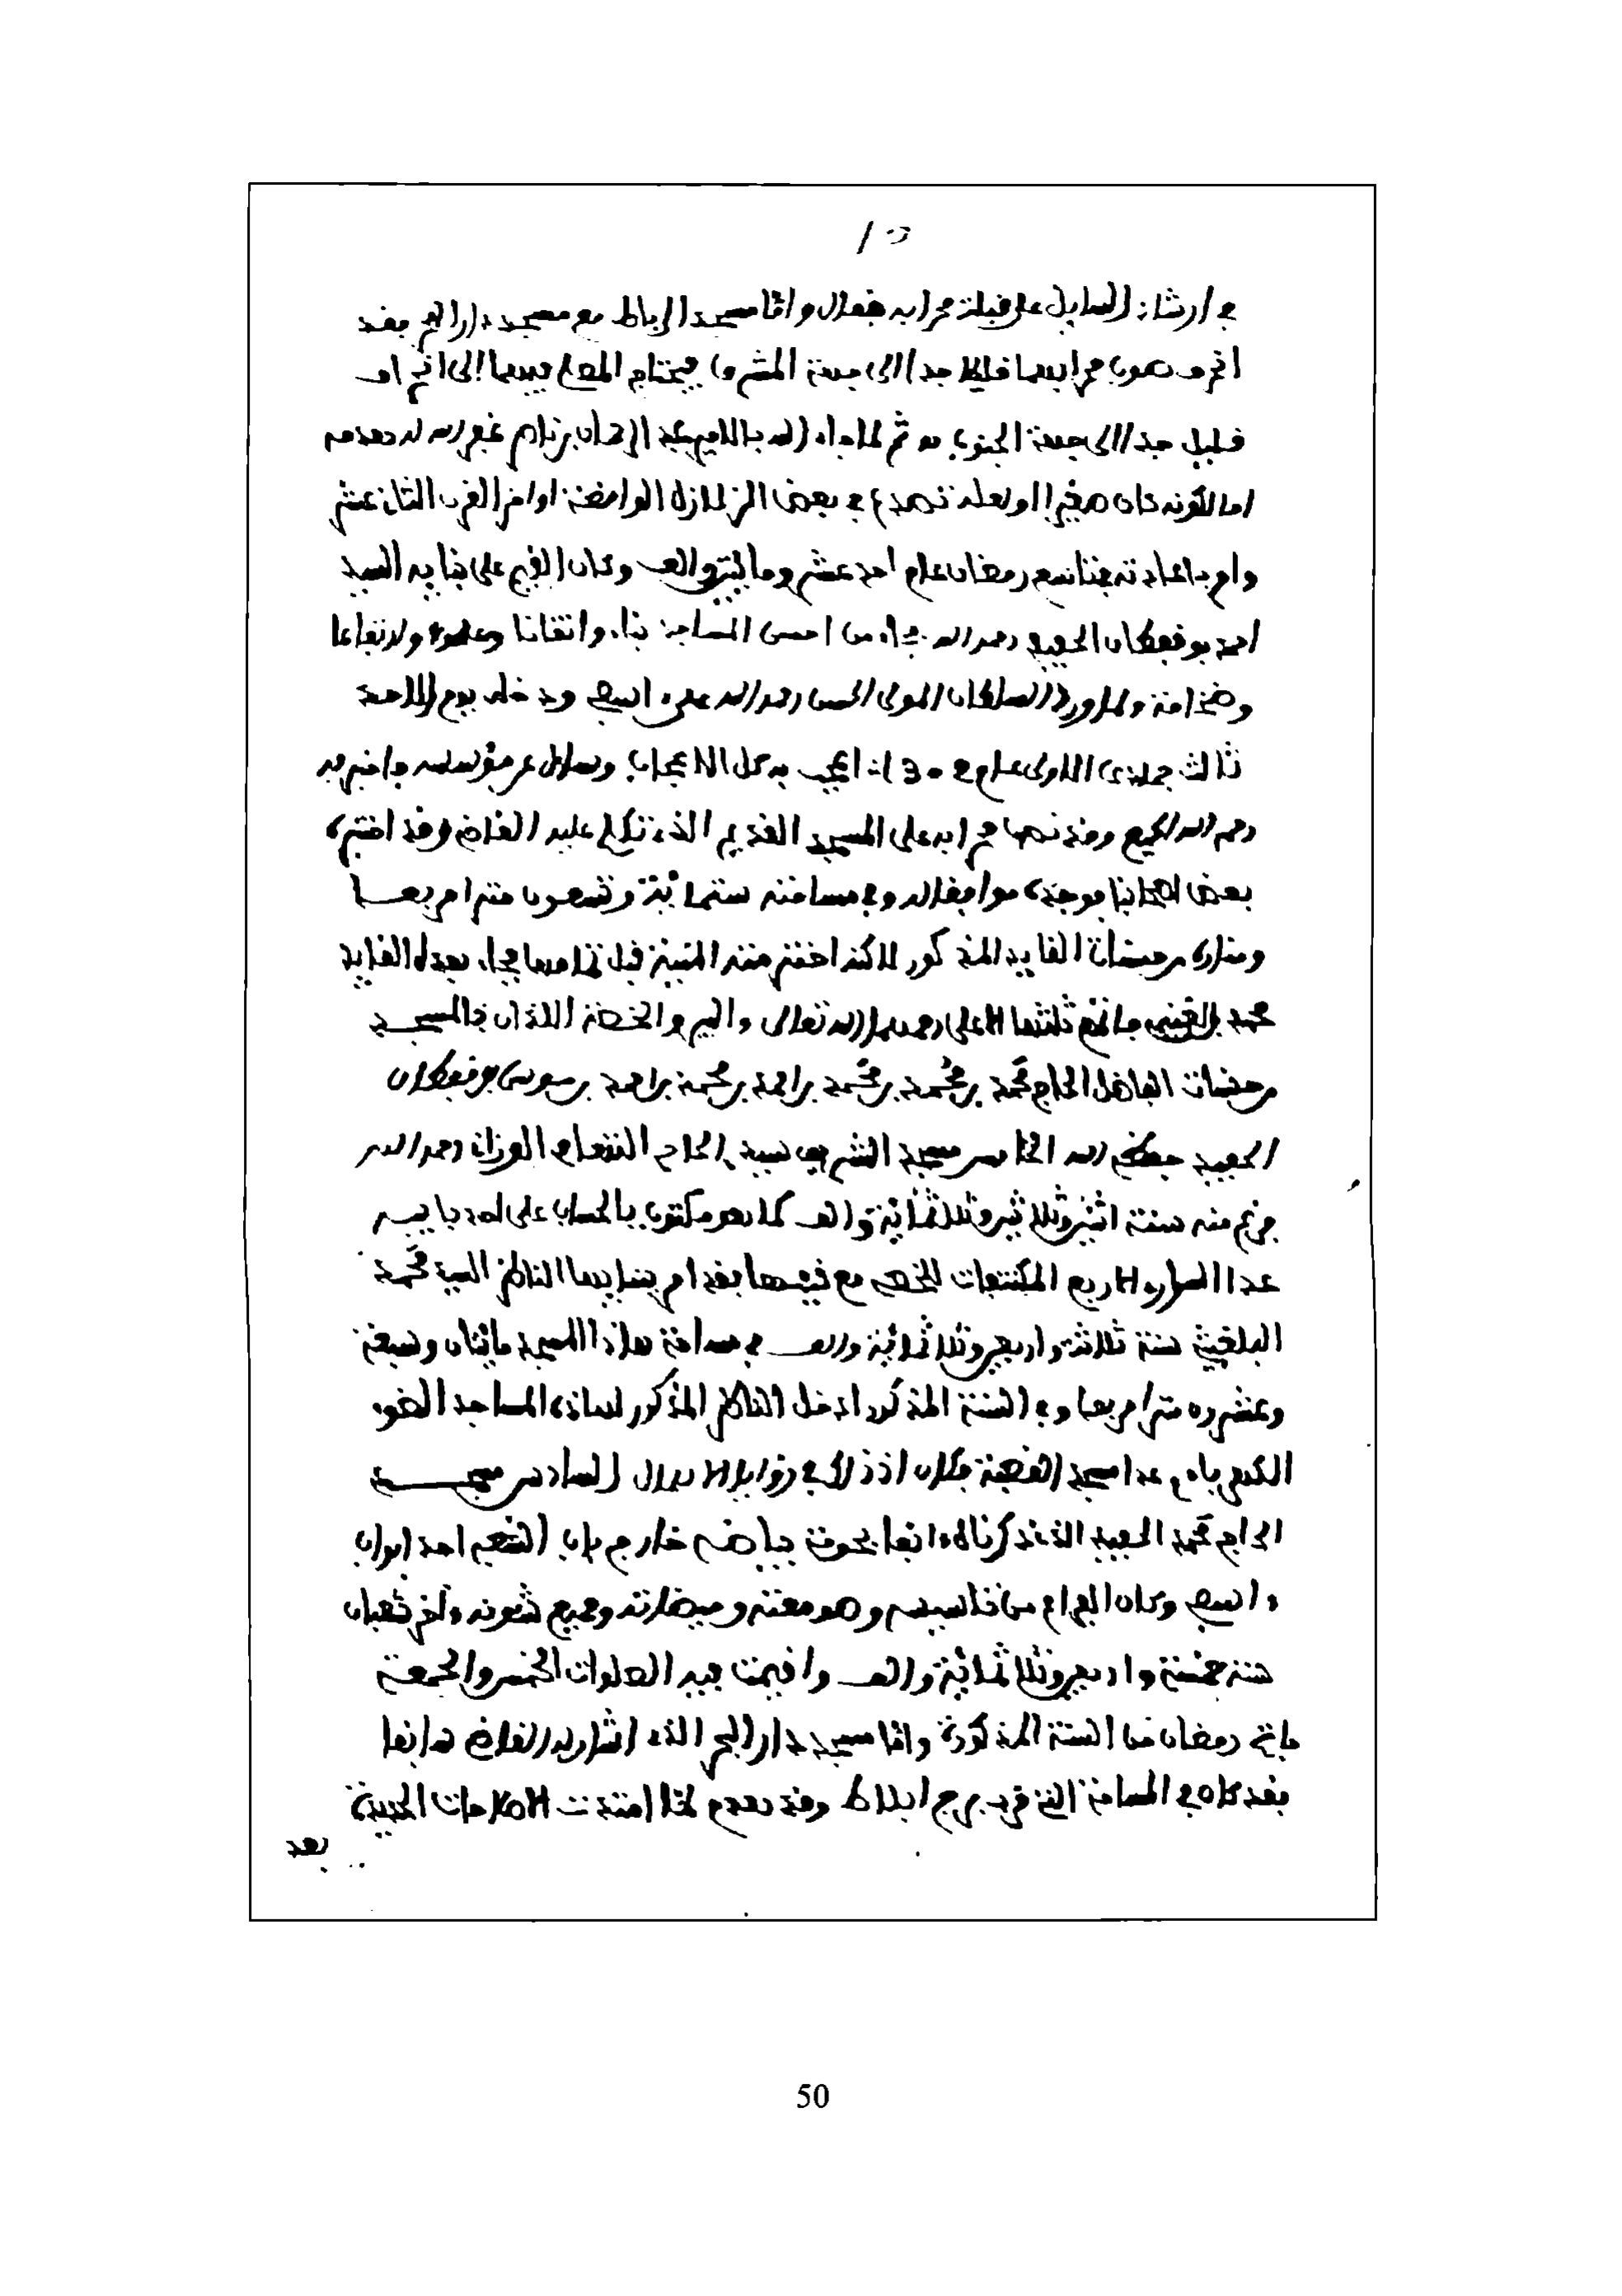 في ارشاد السايل على قبلة محرابه فعلال واما مسجد الرباط مع مسجد دار البحر فقد
انحرف صوب محرابهما قليلا جدا الى جهة المشرق فيحتاج المصلي فيهما الى انحراف
قليل جدا الى جهة الجنوب ثم لما جاء الامير عبد الرحمان بن ناصر غفر الله له هدمه
اما لكونه كان صغيرا او لعله تصدع في بعض الزلازل الواقعة اواخر القرن الثاني عشر
وامر باعادته تاسع رمضان عام احد عشر ومايتين والف وكان القيم على بنايه السيد
احمد بوفطان رحمه الله فجاء من احسن المساجد بناء واتقانا وعلوا وارتفاعا
وضخامة ولما ورد السلطان المولى الحسن رحمه الله على اسفي ودخله يوم الاحد
ثالث جمادى الاولى عام اعجب به كل الاعجاب وسال عن مؤسسه فاخبر به
رحم الله الجميع وقد نصب محرابه على المسجد القديم الذي تكلم عليه القاضي وقد اختبره
بعض احبابنا فوجده موافقا له وفي مسافته ستمائة وتسعون مترا مربعا
ومناره من حسنات القايد المذكور لاكنه اخترمته المنية قبل تمامها فجاء بعده القايد
محمد فاتم ثلثها الاعلى رحمهما الله تعالى والبير والخصة اللذان بالمسجد
من حسنات الفاضل الحاج محمد بن محمد بن محمد بن احمد بن محمد بن احمد بن موسى بوفطان
الخامس مسجد الشريف سيدي الحاج التهامي الوزاني رحمه الله
فرغ منه سنة اثنين وثلاثين وثلاثمائة والف كما هو مكتوب بالحساب على احد بابيه
عدا السواري الاربع المكتنفات للخصة مع قبتها فقد امر ببنايها الناظر السيد محمد
البلغيثي سنة ثلاثة واربعين وثلاثمائة والف في مسافة هاذا المسجد مائتان وسبعة
وعشرون مترا مربعا وفي السنة المذكورة ادخل الناظر المذكور لهاذه المساجد الضوء
الكهربائي عدا مسجد القصبة فكان اذ ذاك في زوايا الاهمال السادس مسجد
الحاج محمد الذي ذكرناه انفا بحومة بياضة خارج باب الشعبة احد ابواب
اسفي وكان الفراغ من تاسيسه وصومعته وميضاته وجميع شئونه واخر شعبان
سنة خمسة واربعين وثلاثمائة والف واقيمت فيه الصلوات الخمس والجمعة
فاتح رمضان من السنة المذكورة واما مسجد دار البحر الذي اشار له القاضي انفا
فقد كان في المسافة التي قرب برج البلاط وقد هدم لما امتدت الاصلاحات الجديدة
بعد
50